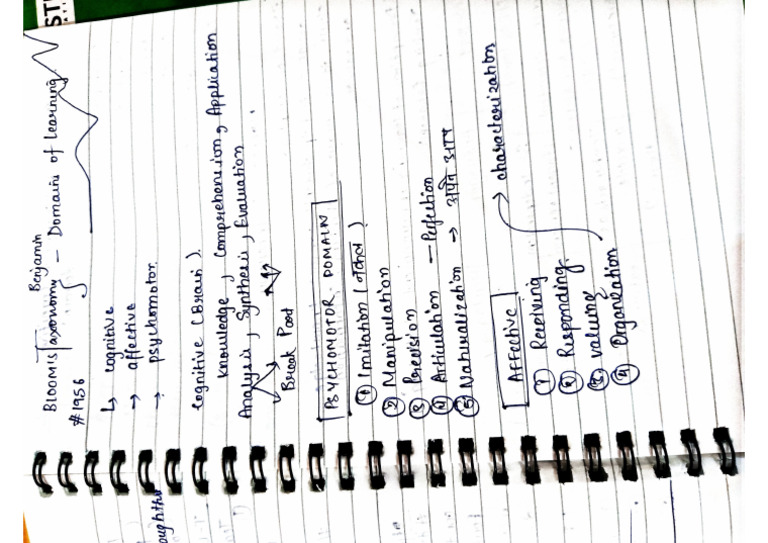 Benjamin
BLOOMIS Taxonomy – Domain of learning
#1956
↳ cognitive
→ affective
→ psychomotor
cognitive (Brain).
knowledge, Comprehension, Application
Analysis, Synthesis, Evaluation
Break
PSYCHOMOTOR DOMAIN
① Imitation (नकल)
② Manipulation
③ Precision
④ Articulation — Perfection
⑤ Naturalization → अपने आप
AFFECTIVE
① Receiving → characterization
② Responding
③ valuing
④ Organization